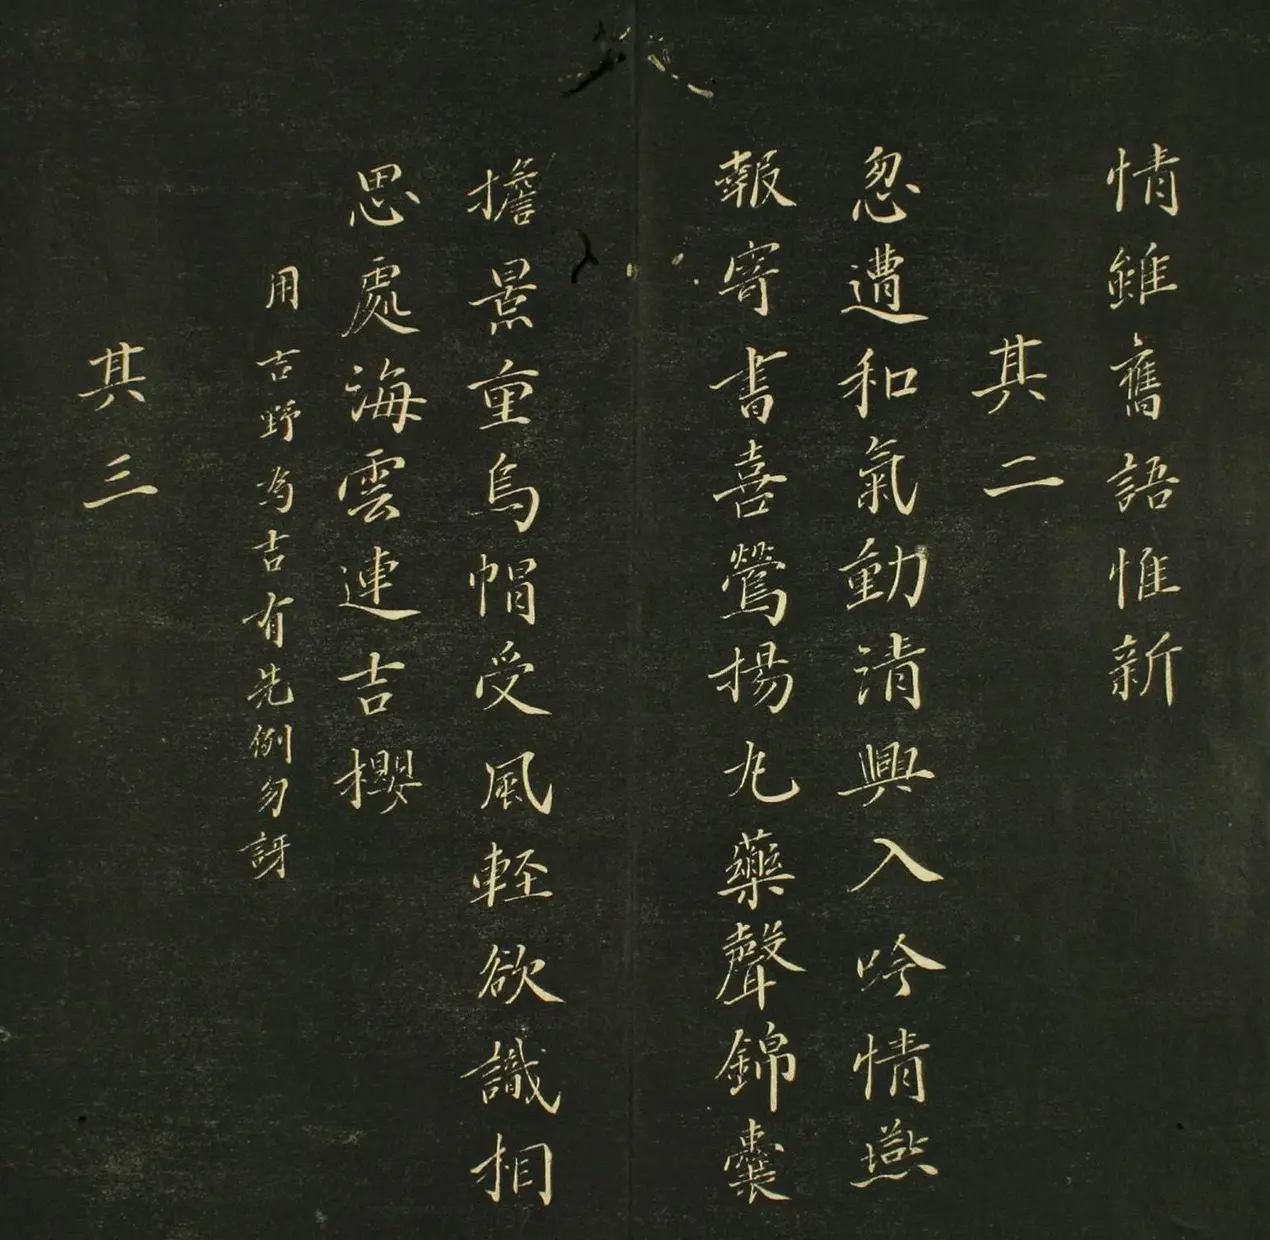 情雖舊語惟新
其二
忽遭和氣動清興入吟情燕
報寄書喜鶯揚丸藥聲錦囊
擔景重烏帽受風輕欲識相
思處海雲連吉櫻
用吉野為吉有先例勿訝
其三